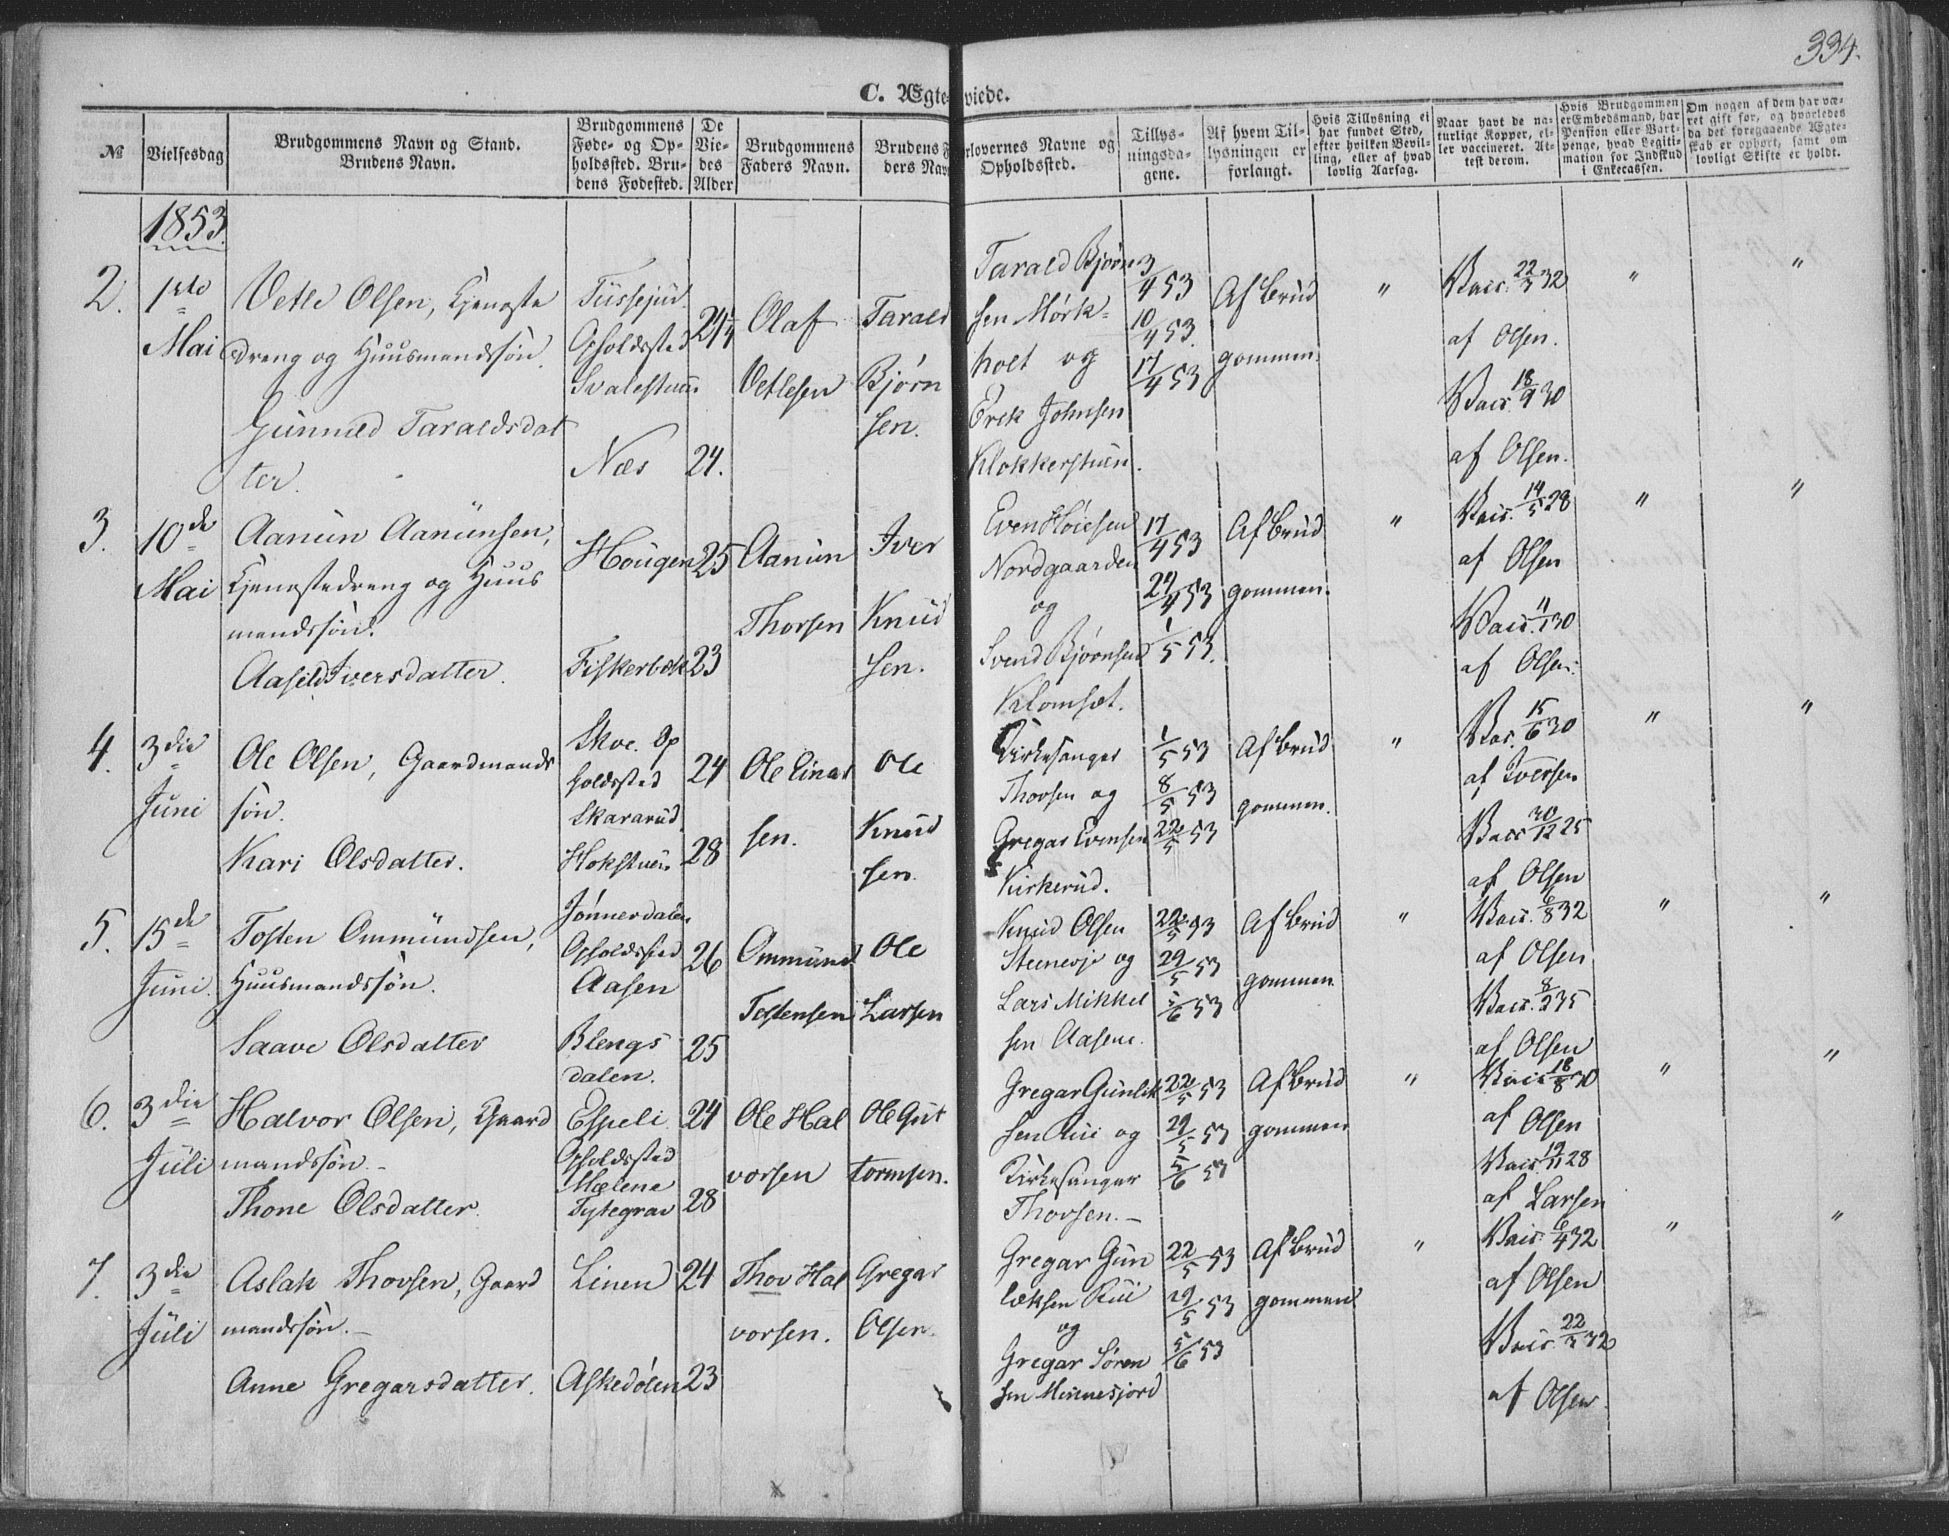 334.
C. Ægteviede.
№
Vielsesdag
Brudgommens Navn og Stand.
Brudens Navn.
Brudgommens
Føde- og Op-
holdssted. Bru-
dens Fødested.
De
Vie-
des
Alder
Brudgommens
Faders Navn.
Brudens F
ders Nav
rlovernes Navne og
Opholdssted.
Tillys-
ningsda-
gene.
Af hvem Til-
lysningen er
forlangt.
Hvis Tillysning ei
har fundet Sted,
efter hvilken Bevil-
ling, eller af hvad
lovlig Aarsag.
Naar havt de na-
turlige Kopper, el-
ler vaccineret. At-
test derom.
Hvis Brudgommen
er Embedsmand, har
Pension eller Vart-
penge, hvad Legiti-
mation for Indskud
i Enkecassen.
Om nogen af dem har væ-
ret gift før, og hvorledes
da det foregaaende Ægte-
skab er ophørt, samt om
lovligt Skifte er holdt.
1853.
2.
1ste
Mai
Vetle Olsen, Tjeneste
dreng og Huusmandssøn.
Gunnild Taraldsdat
ter.
Opholdssted
Næs
24.
Olaf
Vetlesen
Tarald
Bjørn
sen.
Tarald Bjørn
sen Mørk-
holt og
Erik Johnsen
Klokkerstuen.
3/4 53
10/4 53.
17/4 53
Af Brud
gommen.
"
Vacc. 22/7 32
af Olsen.
Vacc. 18/9 30
af Olsen.
"
"
3.
10de
Mai
Aanun Aanunsen,
Tjenestedreng og Huus
mandssøn.
Aasild Iversdatter.
Hougen
Fiskerbæk
25
23
Aanun
Thorsen
Iver
Knud
sen.
Even Høiesen
Nordgaarden
og
Svend Bjørnsen
Klomset.
17/4 53
24/4 53
1/5 53.
Af Brud
gommen.
"
Vacc. 14/5 28
af Olsen
Vacc. 11/1 30
af Olsen.
"
"
4.
3die
Juni
Ole Olsen, Gaardmands
søn.
Kari Olsdatter.
Skoe. Op
holdssted
Skararud
Hokstuen
24
28
Ole Einar
sen.
Ole
Knud
sen
Kirkesanger
Thorsen og
Gregar Evensen
Kirkerud.
1/5 53
8/5 53
22/5 53
Af Brud
gommen.
"
Vac. 15/6 30
af Iversen
Vacc 30/12 25
af Olsen
"
"
5.
15de
Juni.
Tosten Ommundsen,
Huusmandssøn.
Saave Olsdatter
Jønnerdalen
Opholdssted
Aasen
Blengs
dalen.
26
25
Ommund
Tostensen
Ole
Larsen
Knud Olsen
og
Lars Mikkel
sen Aasene.
22/5 53
29/5 53
5/6 53
Af Brud
gommen
"
Vacc. 6/8 32
af Olsen
Vacc. 8/2 35
af Olsen
"
"
6.
3die
Juli
Halvor Olsen, Gaard
mandssøn. -
Thone Olsdatter.
Espeli
Opholdssted
Mælene
Tytegrav
24
28
Ole Hal
vorsen
Ole Gut
tormsen.
Gregar Gunlik
sen Rui og
Kirkesanger
Thorsen. -
22/5 53
29/5 53
5/6 53
Af Brud
gommen
"
Vacc 18/8 30
af Olsen
Vacc. 19/11 28
af Larsen
"
"
7.
3die
Juli
Aslak Thovsen, Gaard
mandssøn. -
Anne Gregarsdatter.
Linen
Askedølen
24
23
Thov Hal
vorsen.
Gregar
Olsen.
Gregar Gun
læksen Rui
og
Gregar Søren
sen Mennesjord
22/5 53
29/5 53
5/6 53
Af Brud
gommen
"
Vacc. 6/4 32
af Olsen
Vacc. 22/7 32
af Olsen.
"
"